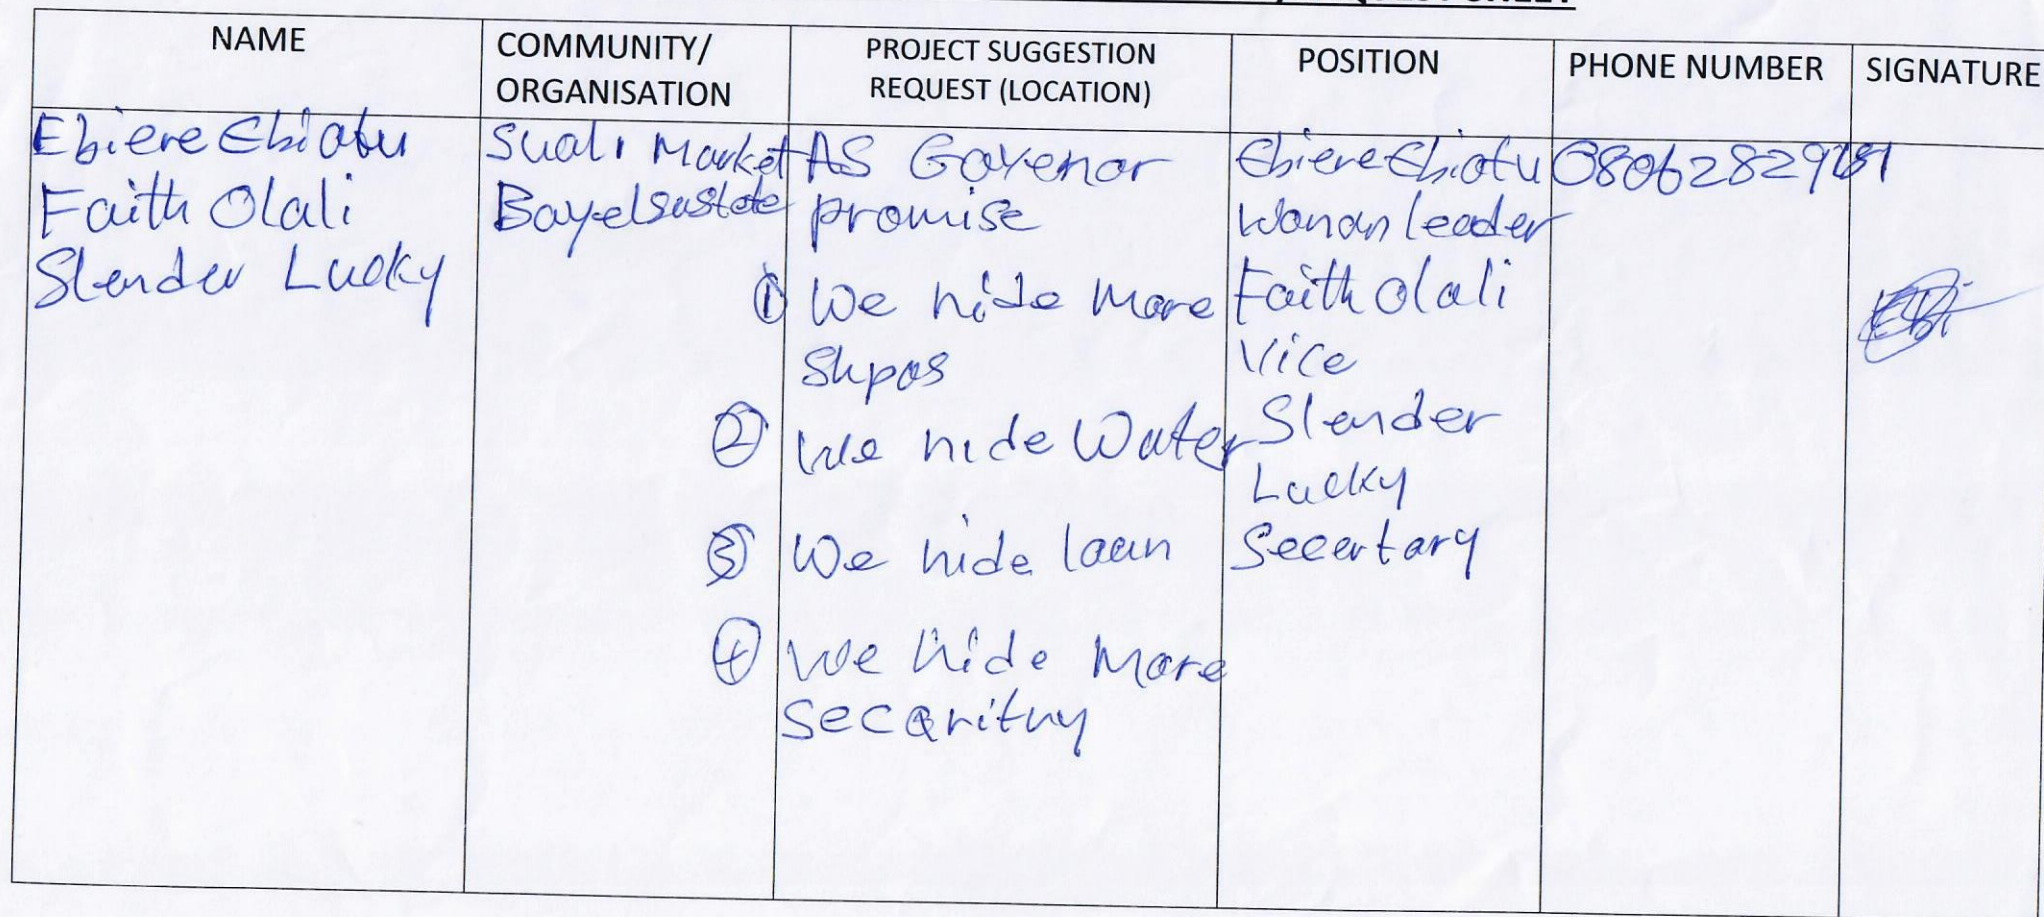 NAME
COMMUNITY/
ORGANISATION
PROJECT SUGGESTION
REQUEST (LOCATION)
POSITION
PHONE NUMBER
SIGNATURE
Ebiere Ebiatu
Faith Olali
Slender Lucky
Swali Market
Bayelsastate
AS Govenor
promise
① We nide More
Shpos
② We nide Water
③ We nide loan
④ We nide More
Secqrituy
Ebiere Ebiatu
Wonan leader
Faith Olali
Vice
Slender
Lucky
Secertary